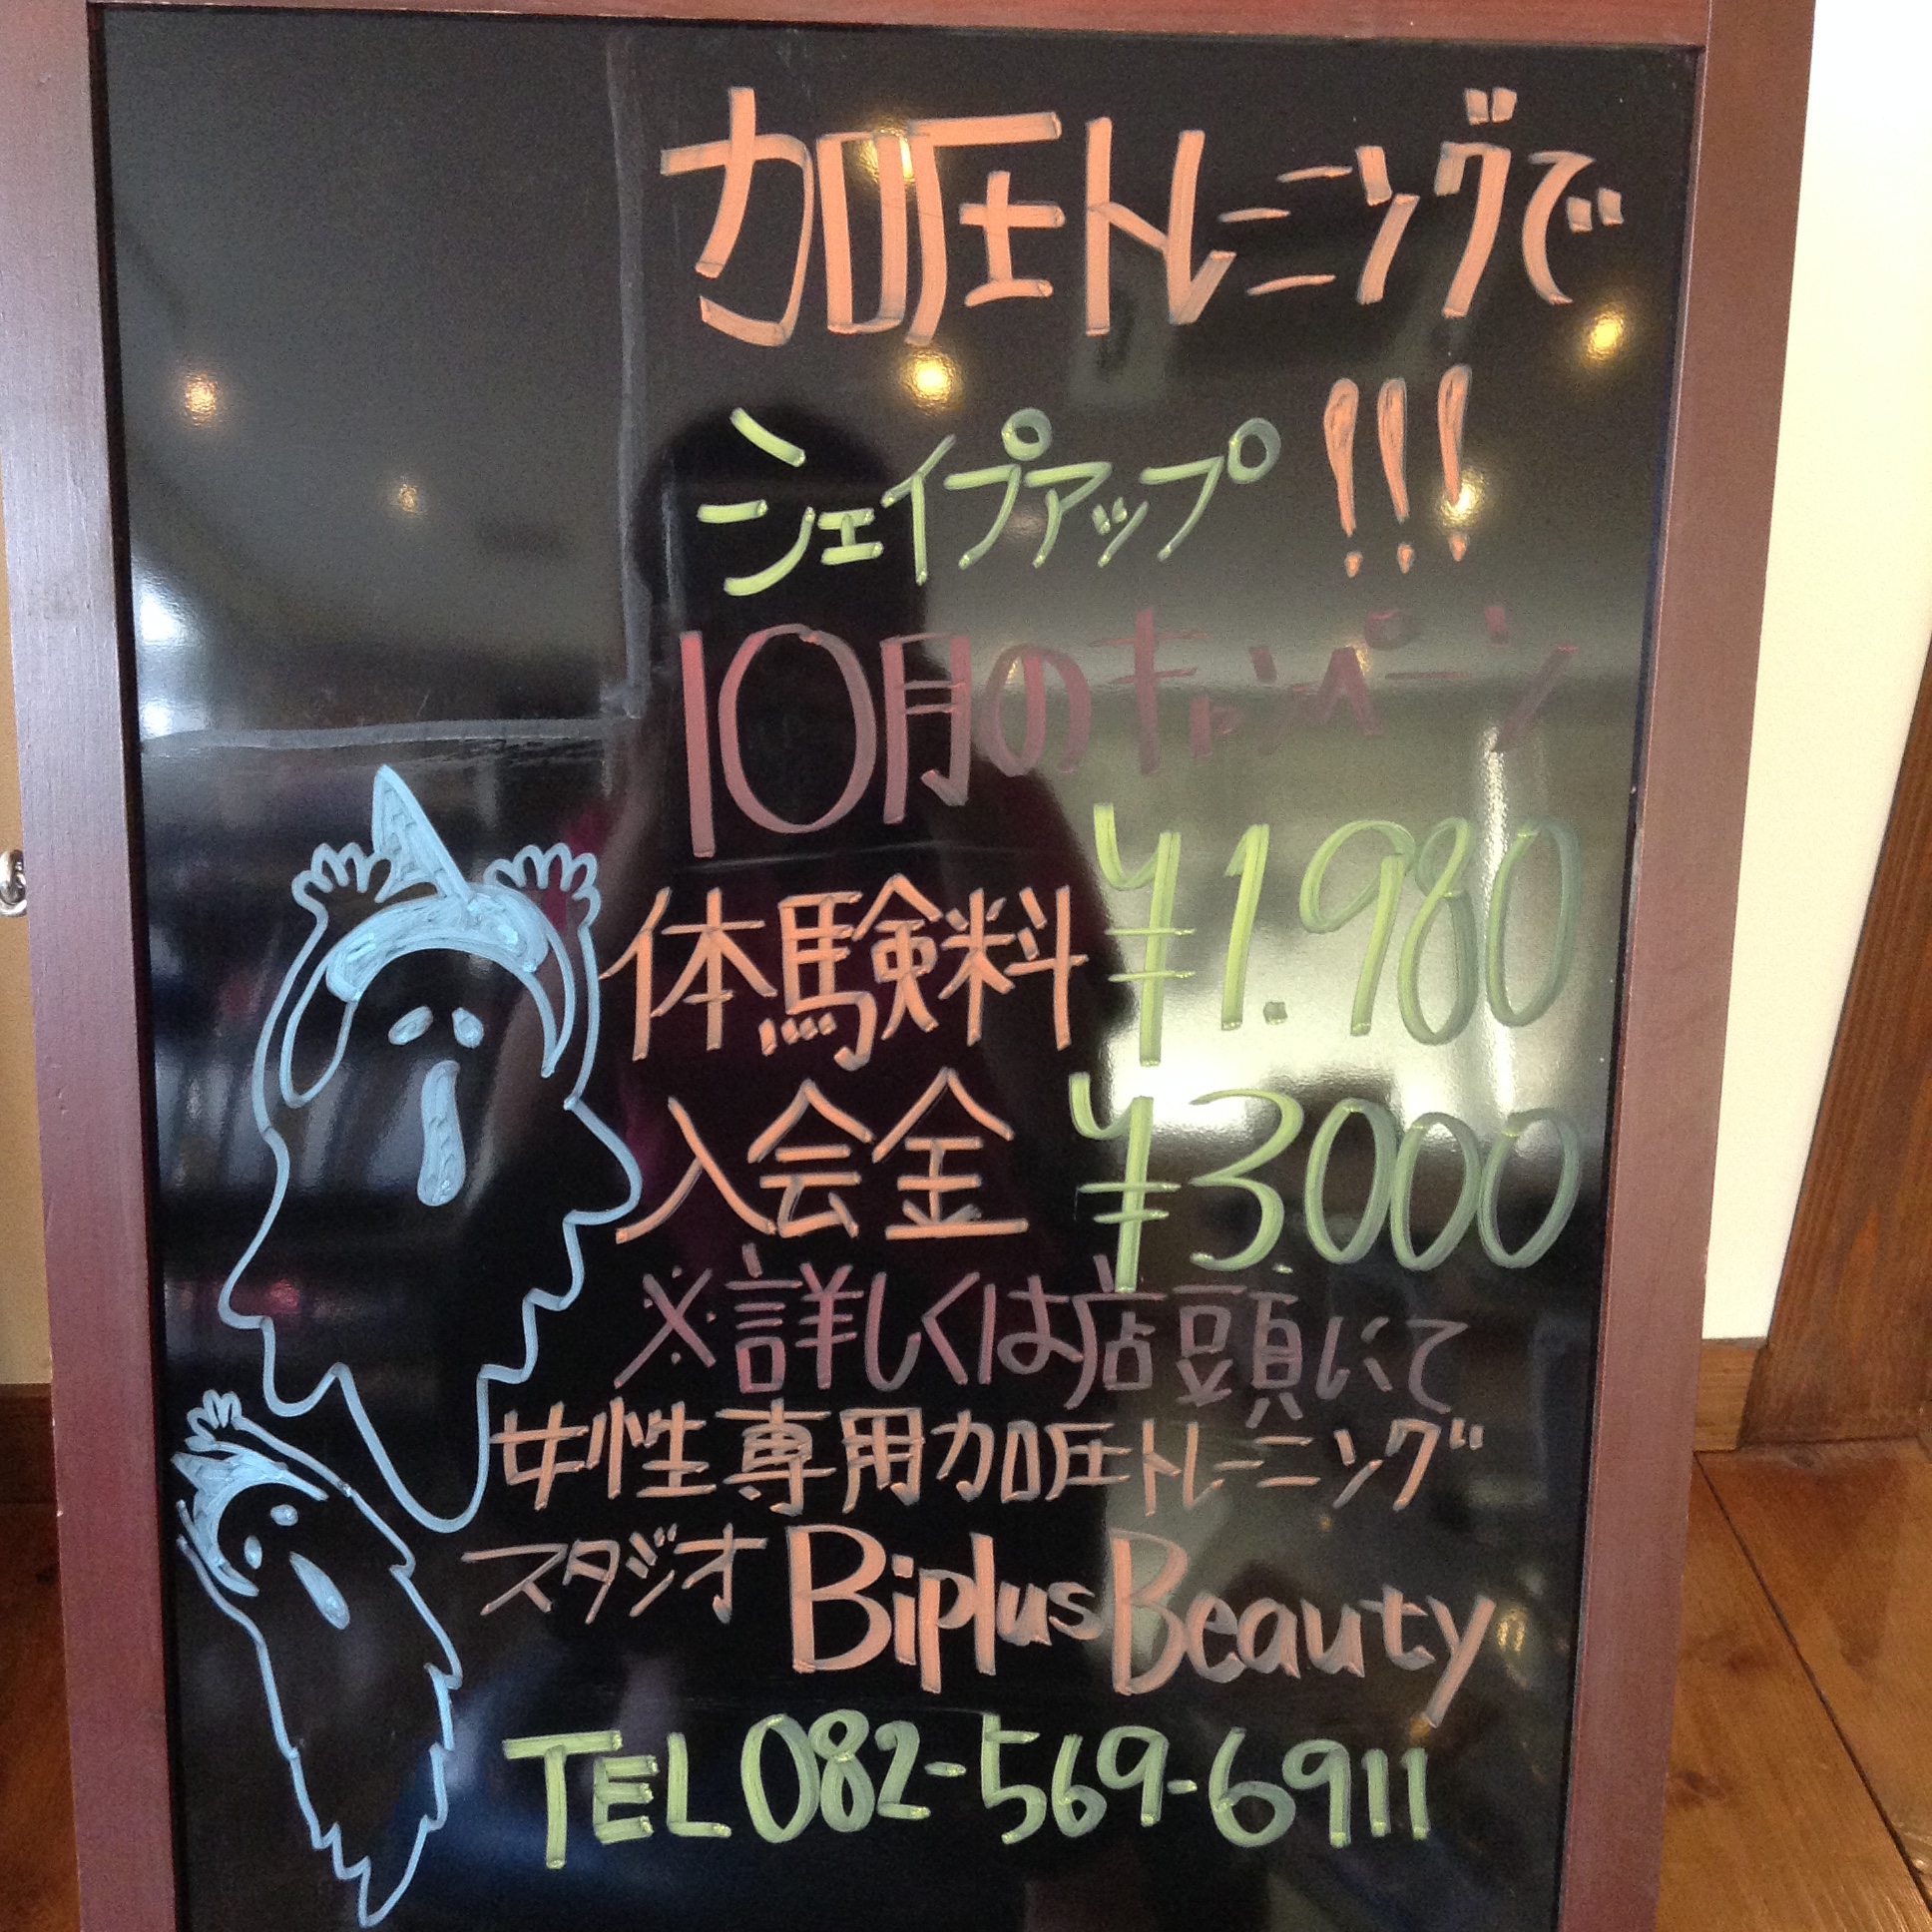 加圧トレーニングで
シェイプアップ!!!
10月のキャンペーン
体験料 ¥1.980
入会金 ¥3000
※詳しくは店頭にて
女性専用加圧トレーニング
スタジオ Biplus Beauty
TEL 082-569-6911